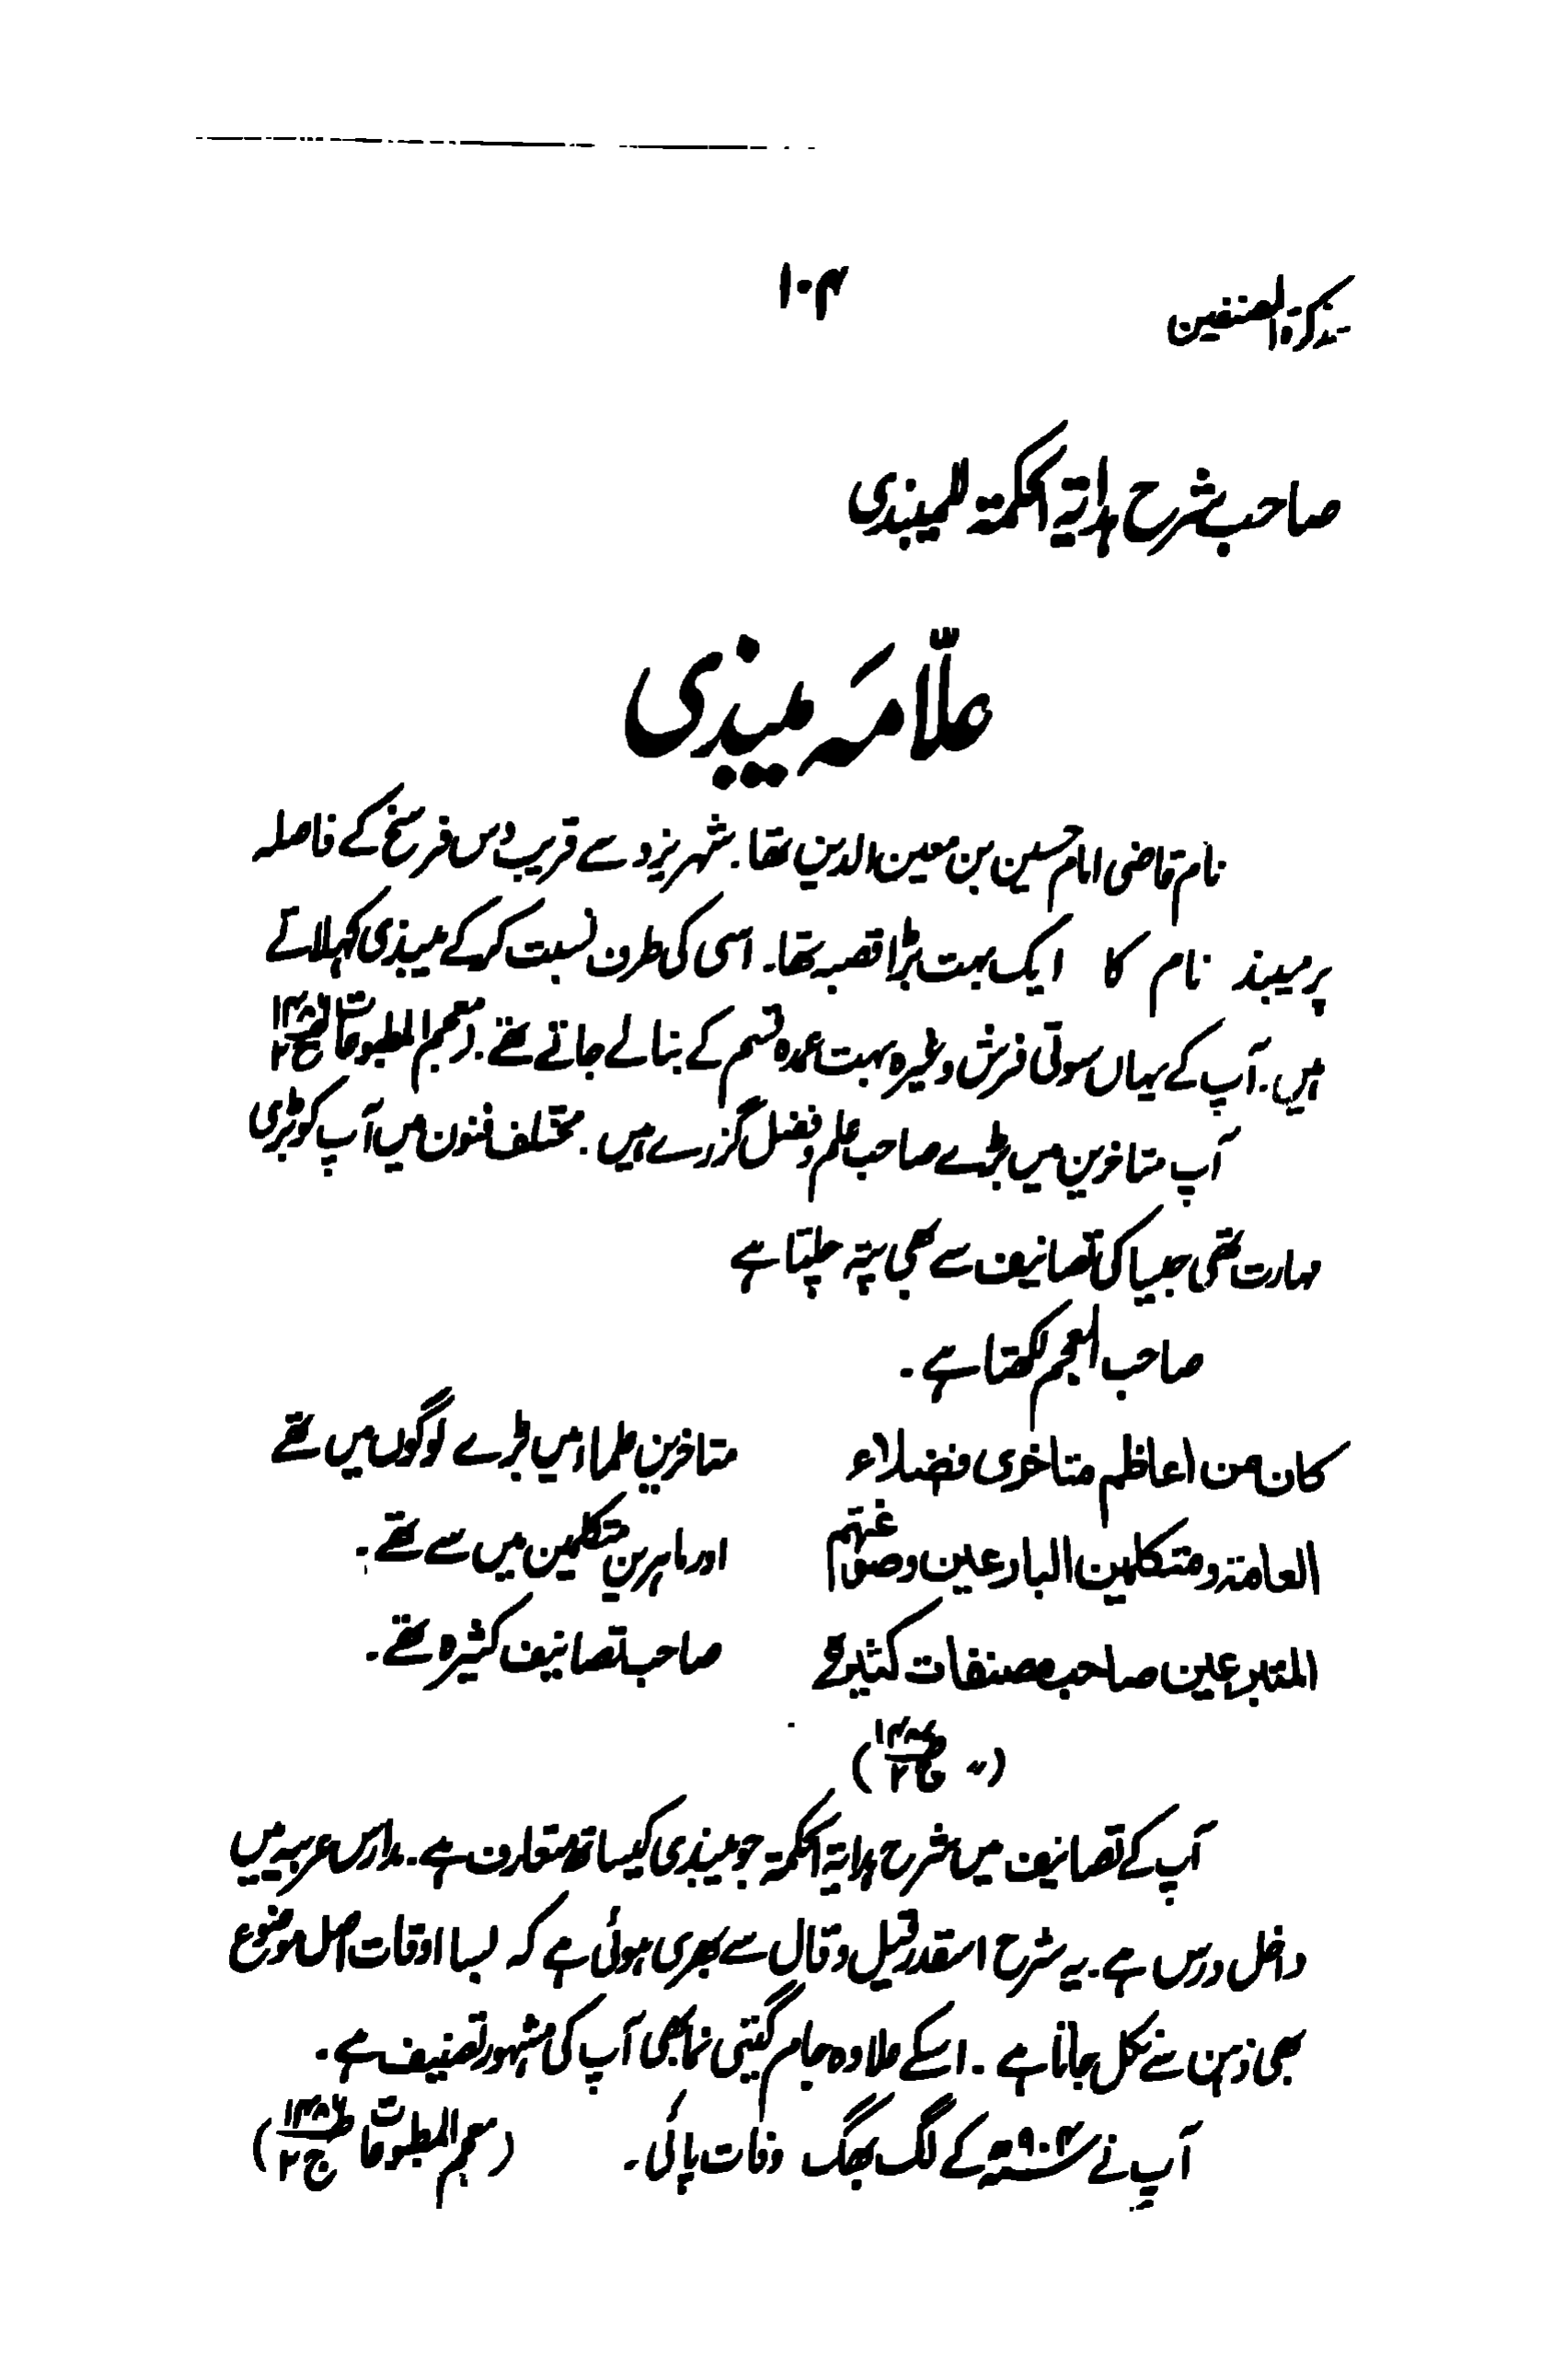 تذکرۃ المصنفین
۱۰۴
صاحب شرح ہدایۃ الحکمۃ للمیبذی
علّامہ میبذی
نام قاضی امام حسین بن معین الدین تھا۔ شہر یزد سے قریب دس فرسخ کے فاصلہ
پر میبذ نام کا ایک بہت بڑا قصبہ تھا۔ اسی کی طرف نسبت کر کے میبذی کہلاتے
ہیں۔ آپ کے یہاں سوتی فرش وغیرہ بہت عمدہ قسم کے بنالے جاتے تھے۔ (معجم المطبوعات ج۲
آپ متاخرین میں بڑے صاحب علم و فضل گزرے ہیں۔ مختلف فنون میں آپ کو بڑی
مہارت تھی جیسا کی تصانیف سے بھی پتہ چلتا ہے
صاحب المعجم لکھتا ہے۔
کان من اعاظم متاخری فضلاء
متاخرین علماء میں بڑے لوگوں میں تھے
العامۃ و متکلمین البارعین وصوفیتہم
اور ماہرین متکلمین میں سے تھے۔
المتبرعین صاحب مصنفات کثیرۃ
صاحب تصانیف کثیرہ تھے۔
(〃 ج۲)
آپ کے تصانیف میں شرح ہدایۃ الحکمۃ جو میبذی کیساتھ متعارف ہے۔ مدارس عربیہ میں
داخل درس ہے۔ یہ شرح اسقدر قیل و قال سے بھری ہوئی ہے کہ بسا اوقات اصل موضوع
بھی ذہن سے نکل جاتا ہے۔ اسکے علاوہ جام گیتی نما بھی آپ کی مشہور تصنیف ہے۔
آپ نے ۹۰۴ھ کے لگ بھگ وفات پائی۔ (معجم المطبوعات ج۲)